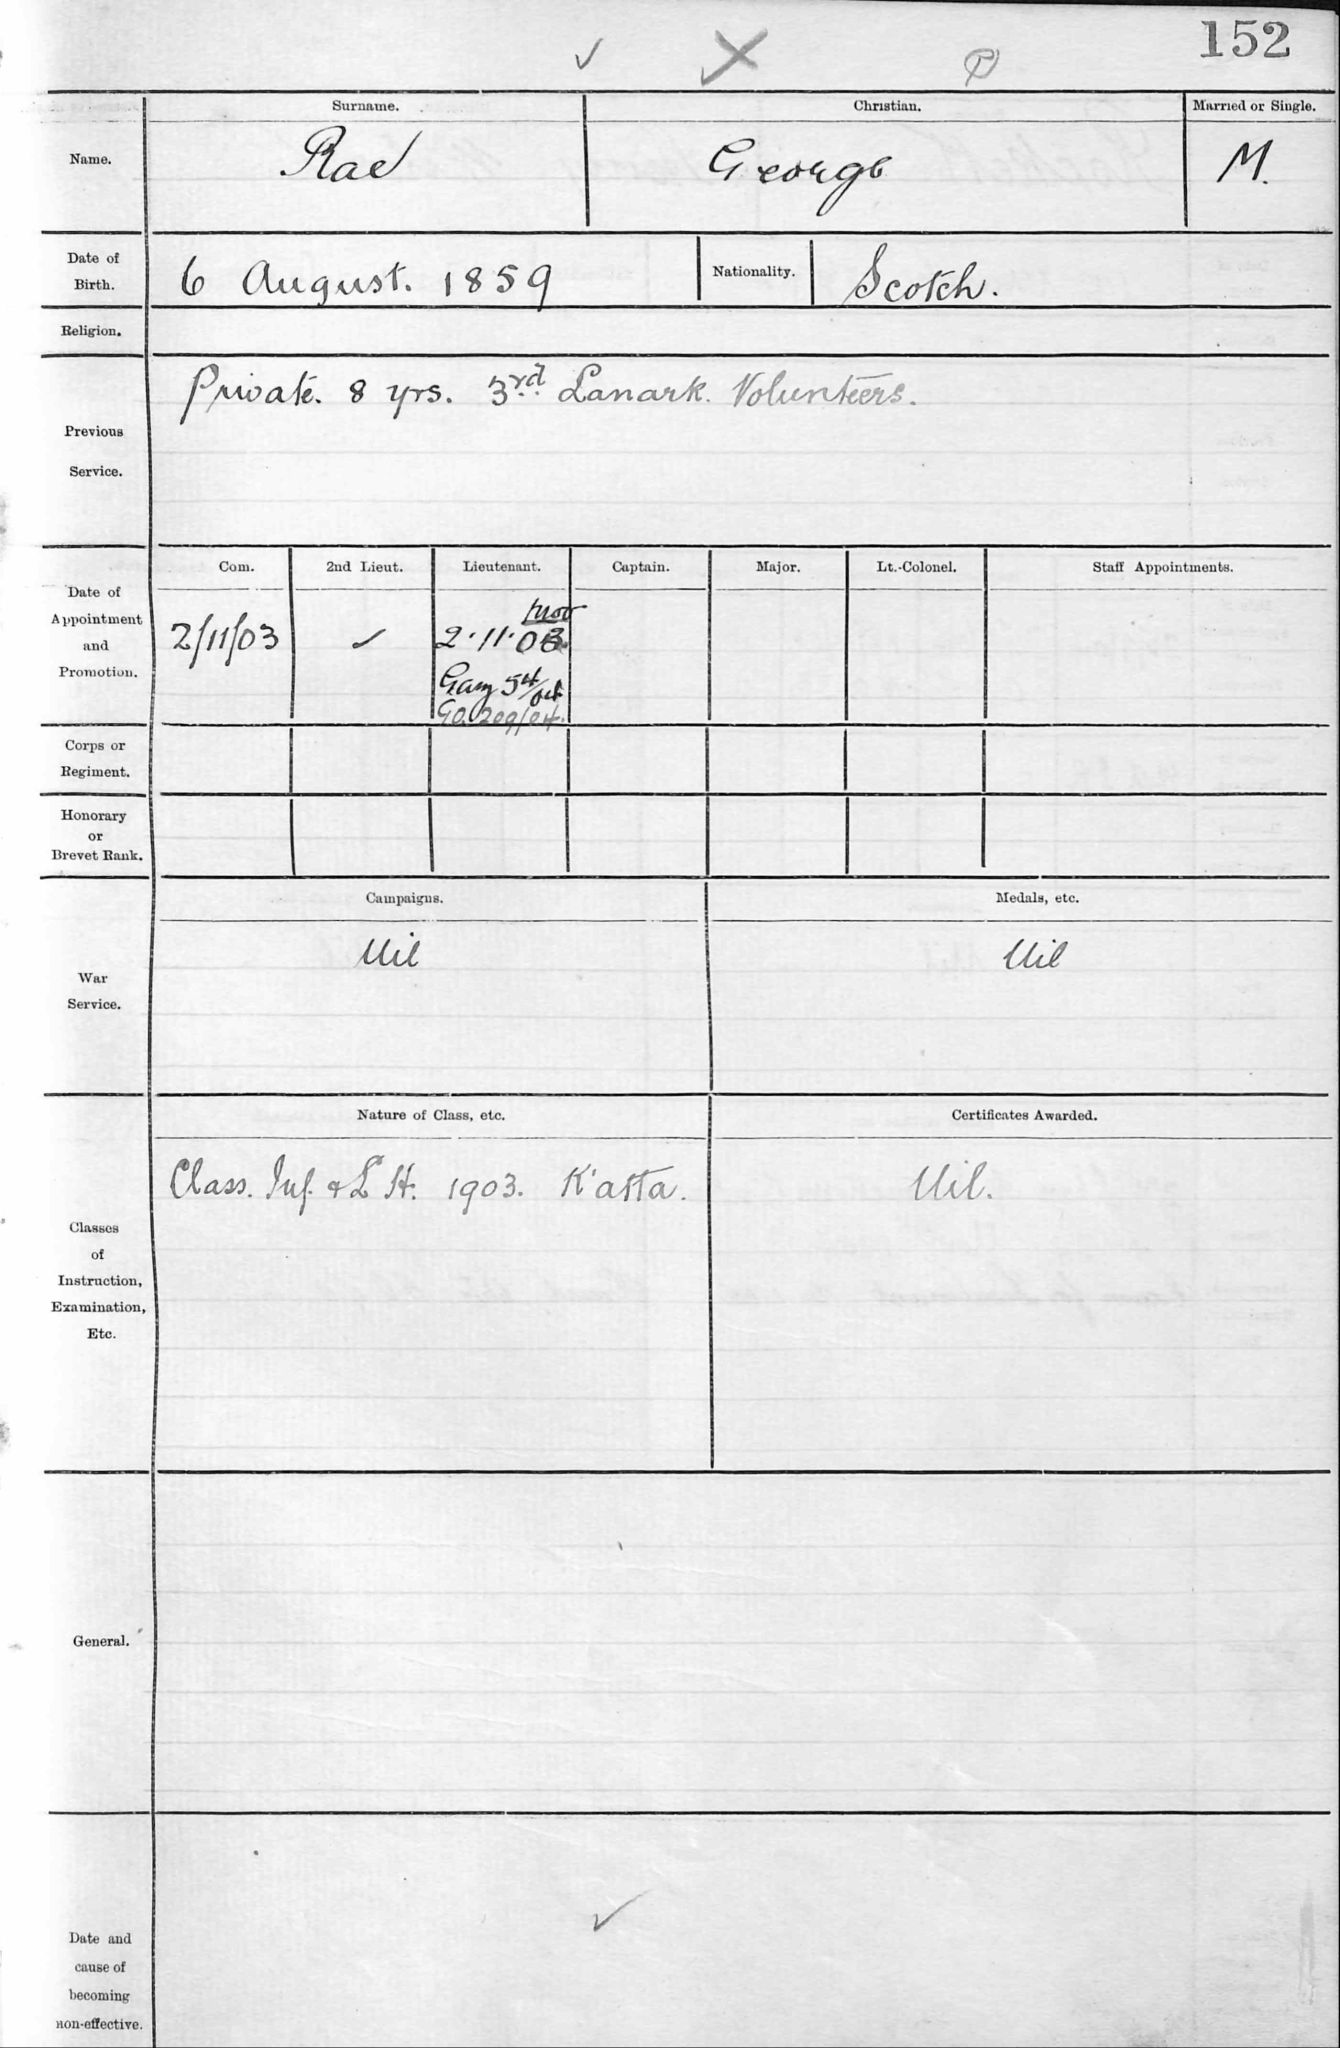 152
Surname. Christian. Married or Single.
Name. Rae George M.
Date of Birth. 6 August. 1859 Nationality. Scotch.
Religion.
Previous Service. Private. 8 yrs. 3rd Lanark. Volunteers.
Com. 2nd Lieut. Lieutenant. Captain. Major. Lt.-Colonel. Staff Appointments.
Date of Appointment and Promotion.
prov
2/11/03 ✓ 2.11.03
Gaz 54/04
GO. 209/04.
Corps or Regiment.
Honorary or Brevet Rank.
Campaigns. Medals, etc.
War Service. Nil Nil
Nature of Class, etc. Certificates Awarded.
Class. Inf. & L H. 1903. K'atta. Nil.
Classes of Instruction, Examination, Etc.
General.
Date and cause of becoming non-effective.